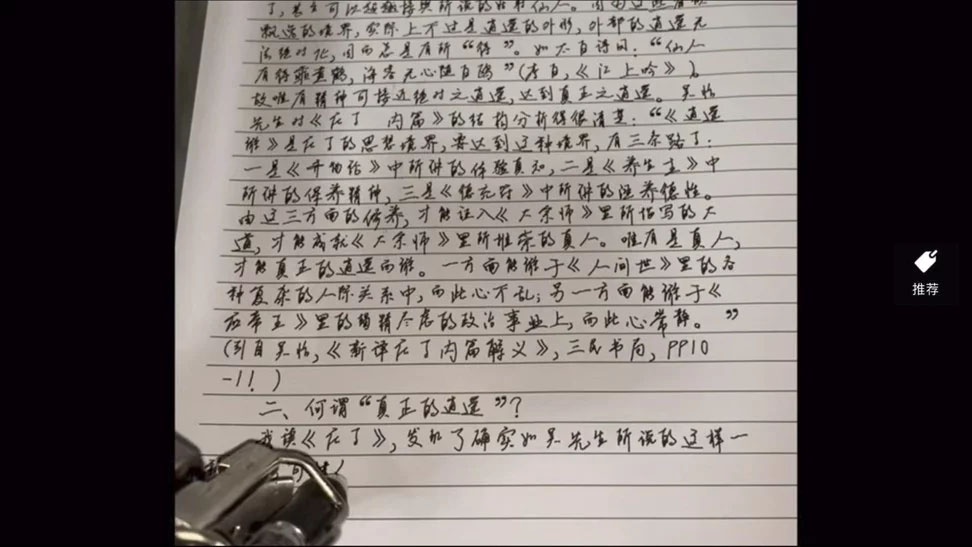 飘逸的境界，实际上不过是逍遥的外形，外部的逍遥无
法绝对化，因而总是有所“待”。如太白诗曰：“仙人
有待乘黄鹤，海客无心随白鸥”（李白，《江上吟》）。
故唯有精神可接近绝对之逍遥，达到真正之逍遥。吴怡
先生对《庄子 内篇》的结构分析得很清楚：“《逍遥
游》是庄子的思想境界，要达到这种境界，有三条路子：
一是《齐物论》中所讲的体验真知，二是《养生主》中
所讲的保养精神，三是《德充符》中所讲的涵养德性。
由这三方面的修养，才能证入《大宗师》里所描写的大
道，才能成就《大宗师》里所推崇的真人。唯有是真人，
才能真正的逍遥而游。一方面能游于《人间世》里的各
种复杂的人际关系中，而此心不乱；另一方面能游于《
应帝王》里的竭精尽虑的政治事业上，而此心常静。”
（引自吴怡，《新译庄子内篇解义》，三民书局，PP10
-11！）
二、何谓“真正的逍遥”？
我读《庄子》，发现了确实如吴先生所说的这样一
推荐